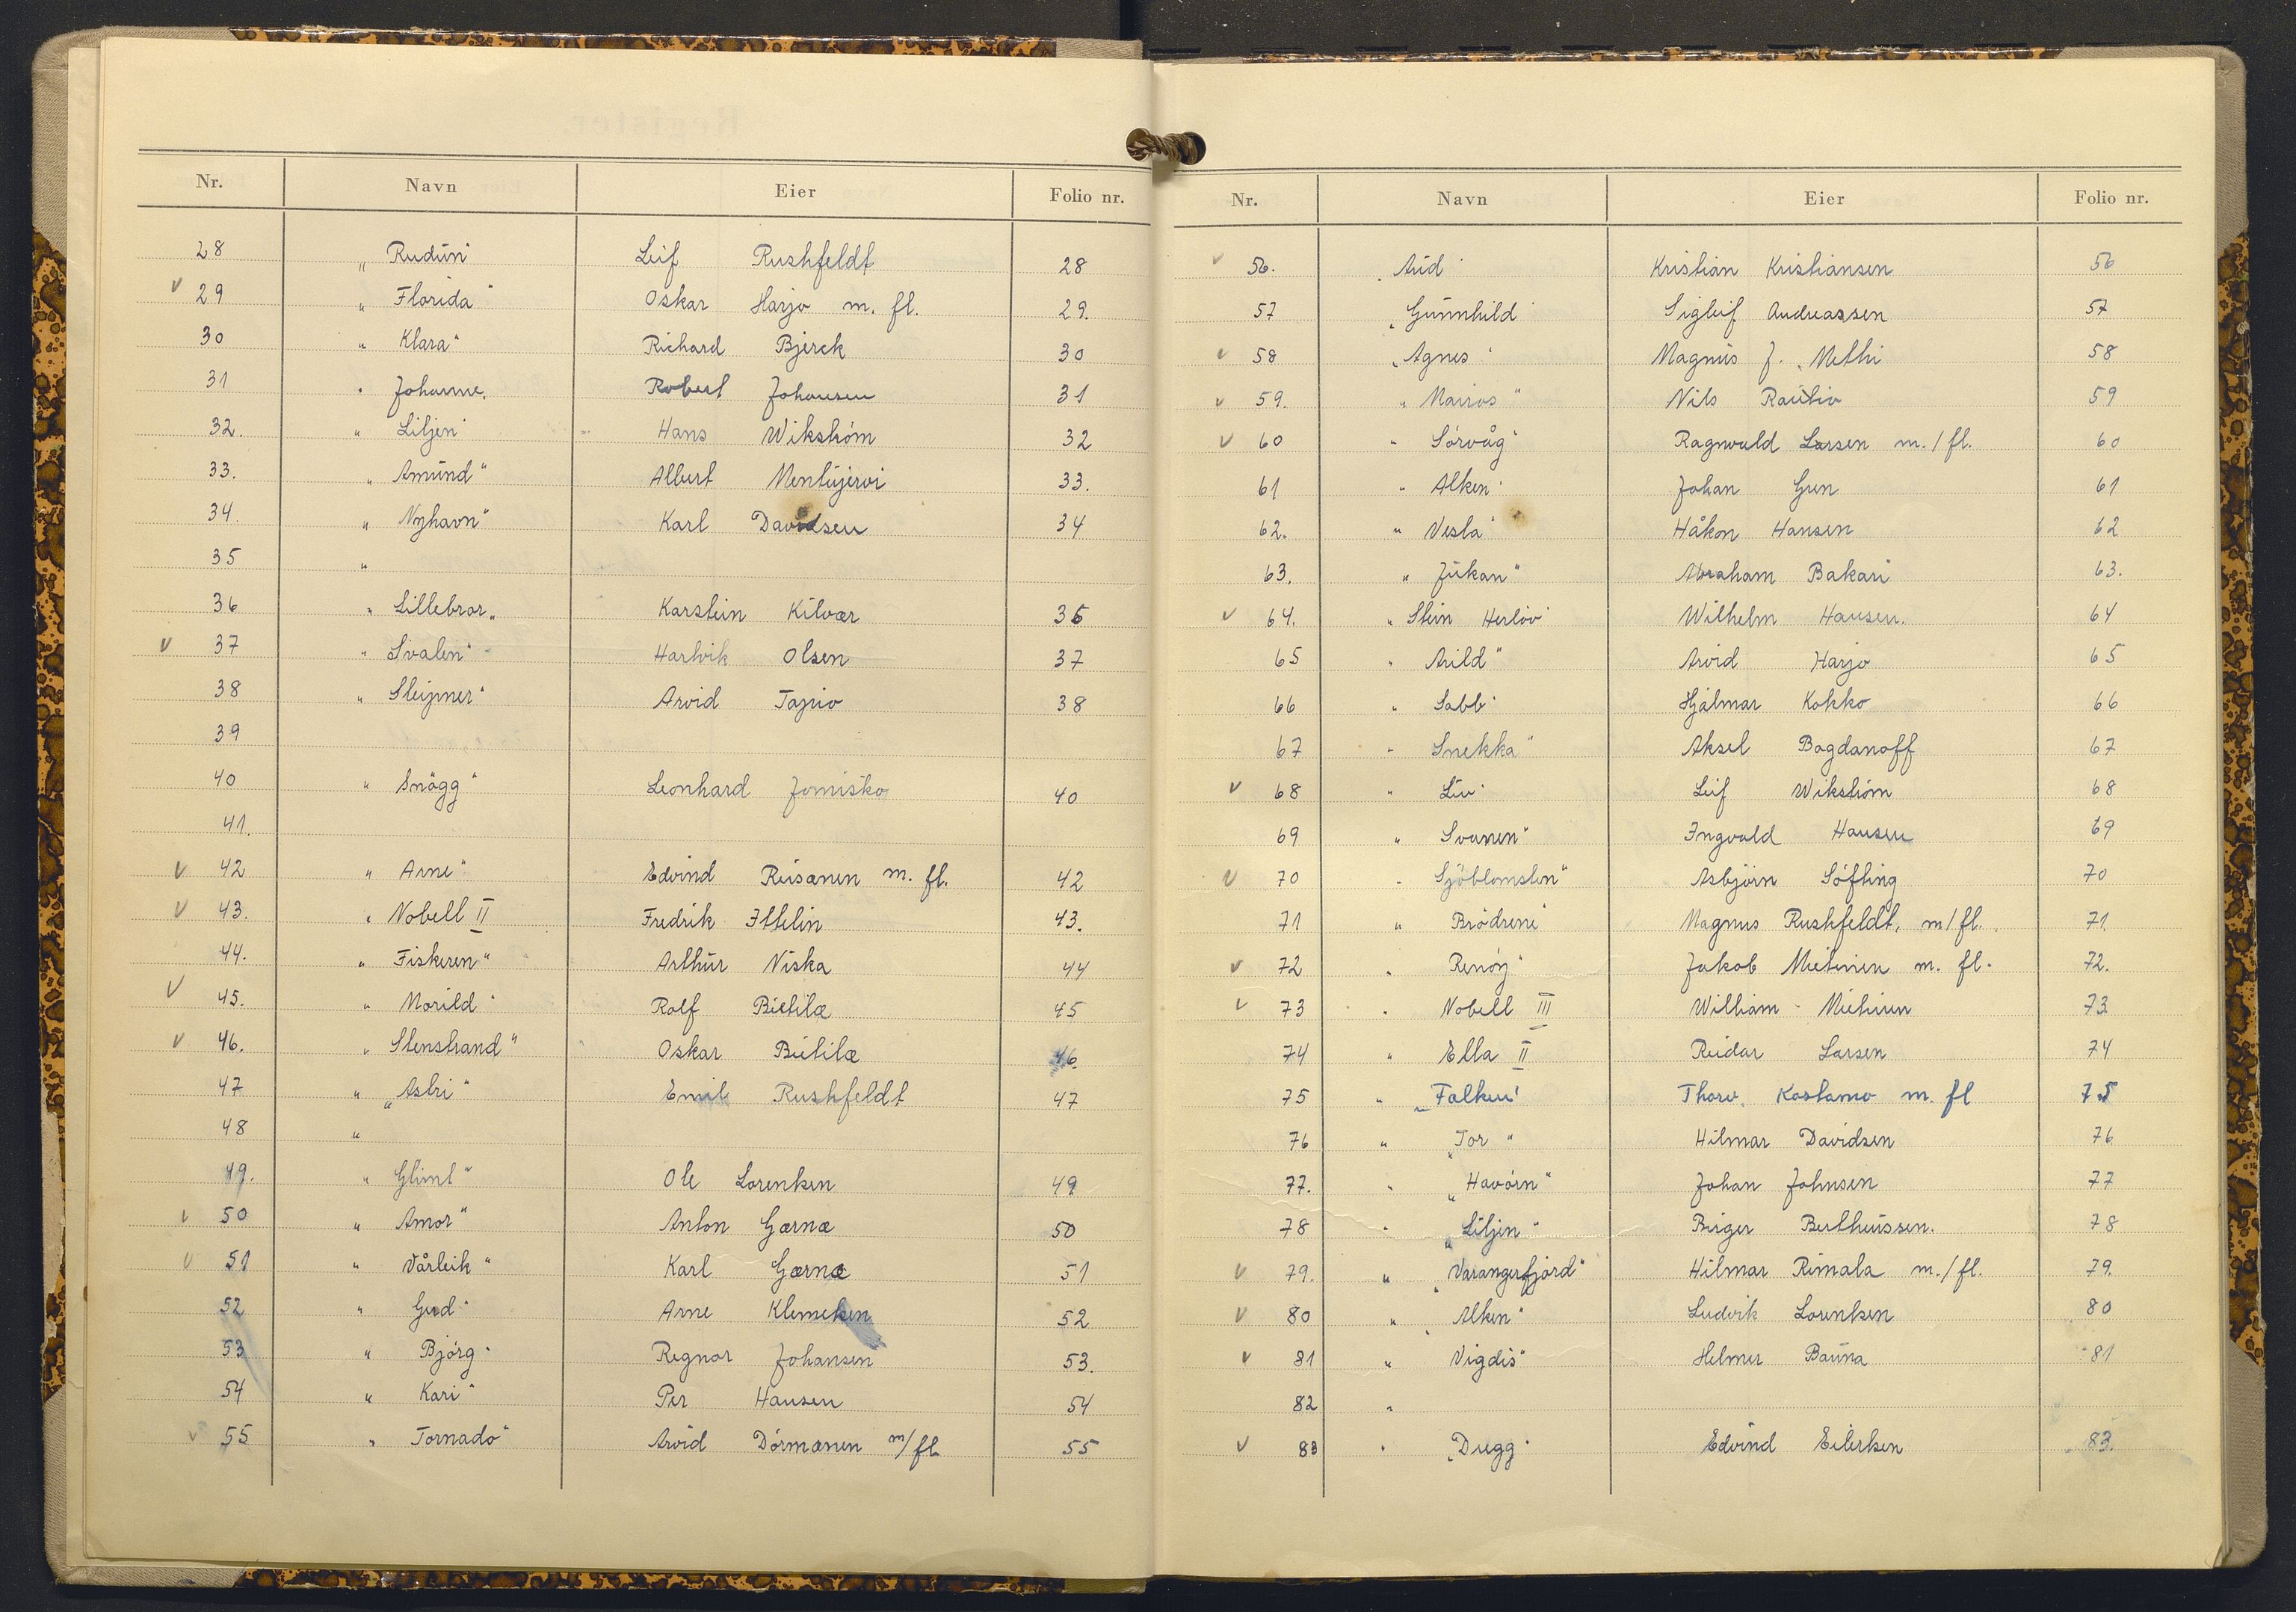 Nr. Navn Eier Folio nr.
28 „ Rudun" Leif Rushfeldt 28
v 29 „ Florida" Oskar Harjo m. fl. 29.
30 „ Klara" Richard Bjerck 30
31 " Johanne. Robert Johansen 31
32. „ Liljen" Hans Wikström 32
33. „ Amund" Albert Mentyjervi 33.
34. „ Nyhavn" Karl Davidsen 34
35 „
36 „ Lillebror„ Karstein Kilvær 36
v 37 „ Svalen" Hartvik Olsen 37
38 „ Sleipner" Arvid Tapio 38
39
40 „ Snögg" Leonhard Jomisko 40
41.
v 42 „ Arne" Edvind Reisænen m. fl. 42
v 43. „ Nobell II Fredrik Ittelin 43.
44. „ Fiskeren" Arthur Niska 44
v 45. „ Morild" Rolf Bietilæ 45
v 46. „ Stenstrand" Oskar Bietilæ 46.
47 „ „Astri" Emil Rushfeldt 47
48 „
49. „ Glimt" Ole Lorentsen 49
v 50 „ Amor" Anton Gærnæ 50
v 51 „ Vårleik" Karl Gærnæ 51
52 „ Gerd" Arne Klemetsen 52
53 „ Björg" Regnor Johansen 53.
54 „ Kari" Per Hansen 54
v 55 „ Tornado" Arvid Dörmænen m/fl. 55
Nr. Navn Eier Folio nr.
v 56. „Aud" Kristian Kristiansen 56
57 „Gunnhild" Sigleif Andreassen 57
v 58 „Agnes" Magnus J. Methi 58
v 59. „ Marios" Nils Rautio 59
v 60 „ Sörvåg" Ragnvald Larsen m./fl. 60
61 „ Alken" Johan Gren 61
62. „ Vesla" Håkon Hansen 62
63. „ Jukan" Abraham Bakari 63.
v 64. „ Stein Herlov" Wilhelm Hansen. 64
65 „ Arild" Arvid Harjo 65
66 „ Sabb" Hjalmar Kokko 66
67 „ Snekka" Aksel Bogdanoff 67
v 68 „ Liv" Leif Wikström 68
69 „ Svanen" Ingvald Hansen 69
v 70 „ Sjöblomsten" Asbjörn Söfting 70
71 „ Brödrene" Magnus Rushfeldt, m/fl. 71.
v 72 „ Renöy" Jakob Mietinen m. fl. 72.
v 73 „ Nobell III William Mietinen 73
74 „ Ella II Reidar Larsen 74
75 „ „Falken" Thorv. Kostamo m. fl 75
76 „ „Tor" Hilmar Davidsen 76
77. „ „Havörn" Johan Johnsen 77
78 „ „Liljen" Birger Bertheussen. 78
v 79. „ „Varangerfjord" Hilmar Rimala m./fl. 79.
v 80 „ „Alken" Ludvik Lorentsen 80
v 81 „ Vigdis" Helmer Bauna 81
82 „
v 83 „ „Dugg" Edvind Eilertsen 83.